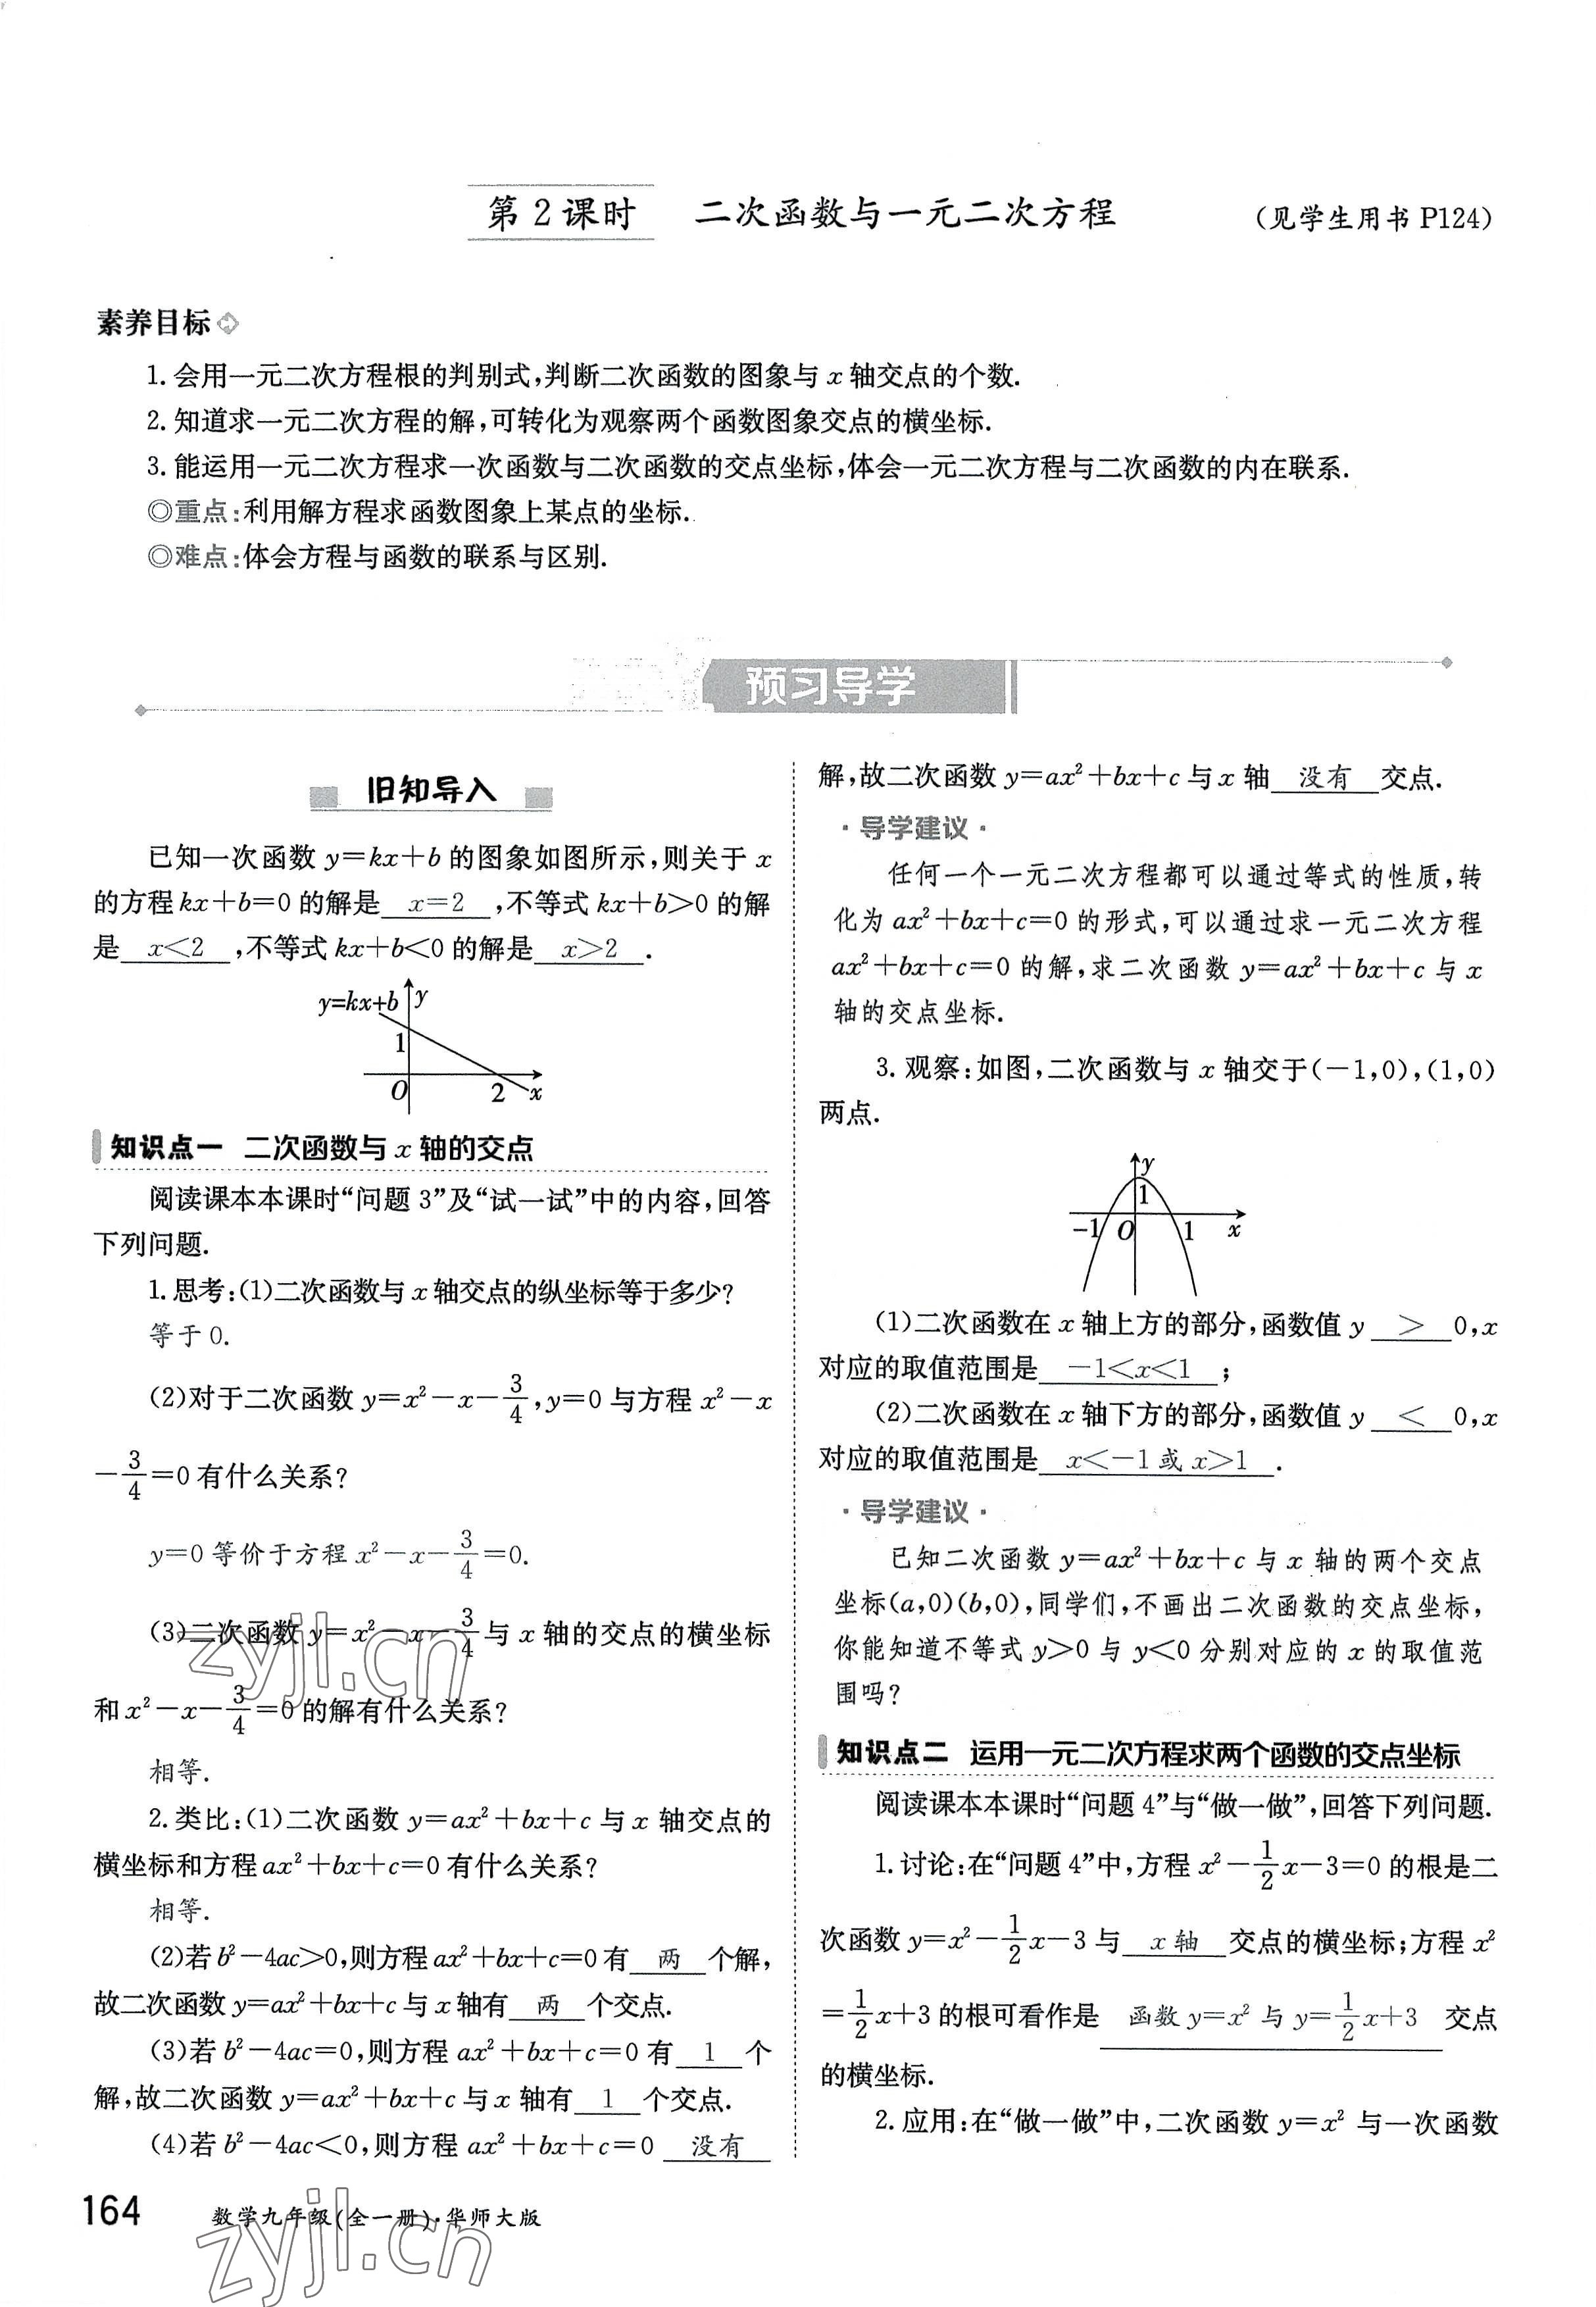 第2课时 二次函数与一元二次方程 (见学生用书 P124)
素养目标
1. 会用一元二次方程根的判别式,判断二次函数的图象与 x 轴交点的个数.
2. 知道求一元二次方程的解,可转化为观察两个函数图象交点的横坐标.
3. 能运用一元二次方程求一次函数与二次函数的交点坐标,体会一元二次方程与二次函数的内在联系.
◎重点:利用解方程求函数图象上某点的坐标.
◎难点:体会方程与函数的联系与区别.
预习导学
旧知导入
已知一次函数 y=kx+b 的图象如图所示,则关于 x
的方程 kx+b=0 的解是 x=2 ,不等式 kx+b>0 的解
是 x<2 ,不等式 kx+b<0 的解是 x>2 .
y=kx+b y
1
O 2 x
知识点一 二次函数与 x 轴的交点
阅读课本本课时“问题 3”及“试一试”中的内容,回答
下列问题.
1. 思考:(1)二次函数与 x 轴交点的纵坐标等于多少?
等于 0.
(2)对于二次函数 y=x²-x-3/4,y=0 与方程 x²-x
-3/4=0 有什么关系?
y=0 等价于方程 x²-x-3/4=0.
(3)二次函数 y=x²-x-3/4与 x 轴的交点的横坐标
和 x²-x-3/4=0 的解有什么关系?
相等.
2. 类比:(1)二次函数 y=ax²+bx+c 与 x 轴交点的
横坐标和方程 ax²+bx+c=0 有什么关系?
相等.
(2)若 b²-4ac>0,则方程 ax²+bx+c=0 有 两 个解,
故二次函数 y=ax²+bx+c 与 x 轴有 两 个交点.
(3)若 b²-4ac=0,则方程 ax²+bx+c=0 有 1 个
解,故二次函数 y=ax²+bx+c 与 x 轴有 1 个交点.
(4)若 b²-4ac<0,则方程 ax²+bx+c=0 没有
解,故二次函数 y=ax²+bx+c 与 x 轴 没有 交点.
·导学建议·
任何一个一元二次方程都可以通过等式的性质,转
化为 ax²+bx+c=0 的形式,可以通过求一元二次方程
ax²+bx+c=0 的解,求二次函数 y=ax²+bx+c 与 x
轴的交点坐标.
3. 观察:如图,二次函数与 x 轴交于(-1,0),(1,0)
两点.
y
1
-1 O 1 x
(1)二次函数在 x 轴上方的部分,函数值 y > 0,x
对应的取值范围是 -1<x<1 ;
(2)二次函数在 x 轴下方的部分,函数值 y < 0,x
对应的取值范围是 x<-1 或 x>1 .
·导学建议·
已知二次函数 y=ax²+bx+c 与 x 轴的两个交点
坐标(a,0)(b,0),同学们,不画出二次函数的交点坐标,
你能知道不等式 y>0 与 y<0 分别对应的 x 的取值范
围吗?
知识点二 运用一元二次方程求两个函数的交点坐标
阅读课本本课时“问题 4”与“做一做”,回答下列问题.
1. 讨论:在“问题 4”中,方程 x²-1/2x-3=0 的根是二
次函数 y=x²-1/2x-3 与 x 轴 交点的横坐标;方程 x²
=1/2x+3 的根可看作是 函数 y=x² 与 y=1/2x+3 交点
的横坐标.
2. 应用:在“做一做”中,二次函数 y=x² 与一次函数
164 数学九年级(全一册)·华师大版
zyjl.cn
zyjl.cn